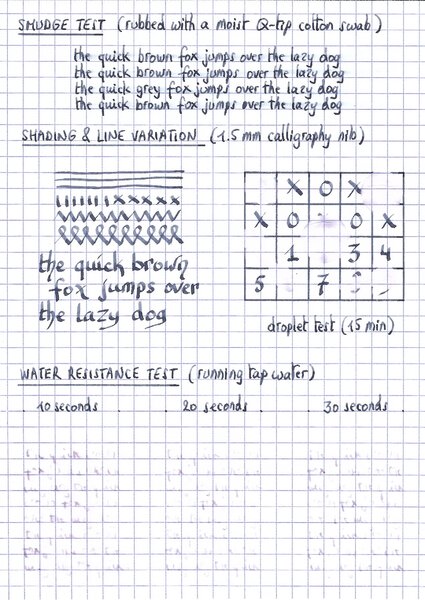 SMUDGE TEST (rubbed with a moist Q-tip cotton swab)
the quick brown fox jumps over the lazy dog
the quick brown fox jumps over the lazy dog
the quick grey fox jumps over the lazy dog
the quick brown fox jumps over the lazy dog
SHADING & LINE VARIATION (1.5 mm calligraphy nib)
X O X
X O O X
1 3 4
5 7
the quick brown
fox jumps over
the lazy dog
droplet test (15 min)
WATER RESISTANCE TEST (running tap water)
10 seconds 20 seconds 30 seconds